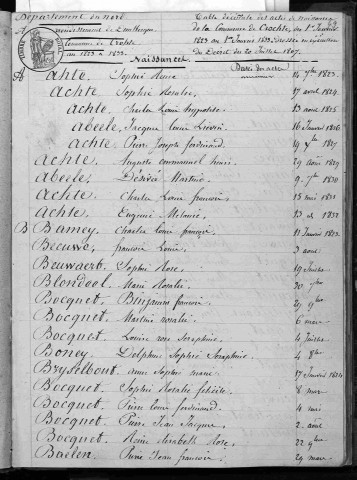 Département du nord
arrondissement de Dunkerque
Commune de Crochte
du 1823 au 1833.
Table décennale des actes de naissance
de la Commune de Crochte, du 1er Janvier
1823 au 1er Janvier 1833, dressée en exécution
du Décret du 20 Juillet 1807.
Naissances
Dates des actes
A Achte, Sophie Reine 14 7bre 1823.
Achte Sophie Rosalie, 17 avril 1824.
Achte Charles Louis hyppolite 13 août 1825
Abeele, Jacques Louis Liévin 16 février 1826
Achte Pierre Joseph ferdinand 19 Xbre 1827
Achte, Auguste emmanuel henri 29 août 1829
Abeele, Désirée Martine 9 7bre 1830
Achte, Charles Louis francois 15 mai 1831
Achte, Eugenie Melanie, 23 1831
B Bamey Charles Louis francois 11 Janvier 1823.
Becuwe, francois Louis 3 août
Beuwaert, Sophie Rose, 19 Juillet
Blondeel, Marie Rosalie 30 7bre
Bocquet Benjamin francois 21 9bre
Bocquet Martine rosalie 6 mars
Bocquet, Louise rose Seraphine 4 Juillet
Boney, Delphine Sophie Seraphine 4 8bre
Bryselbout, anne Sophie marie 17 Janvier 1824
Bocquet Sophie Rosalie felicité 8 mars
Bocquet, Pierre Louis ferdinand 4 mai
Bocquet, Pierre Jean Jacques 2 août
Bocquet, Reine elisabeth Rose, 22 9bre
Baelen, Pierre Jean francois 29 mars